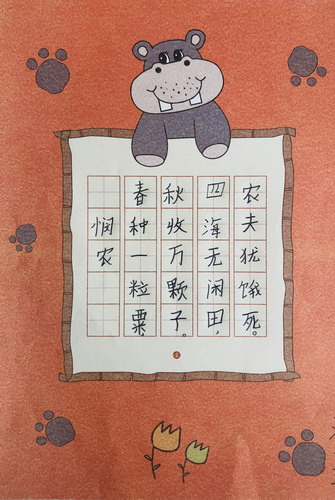 悯农
春种一粒粟,
秋收万颗子。
四海无闲田,
农夫犹饿死。